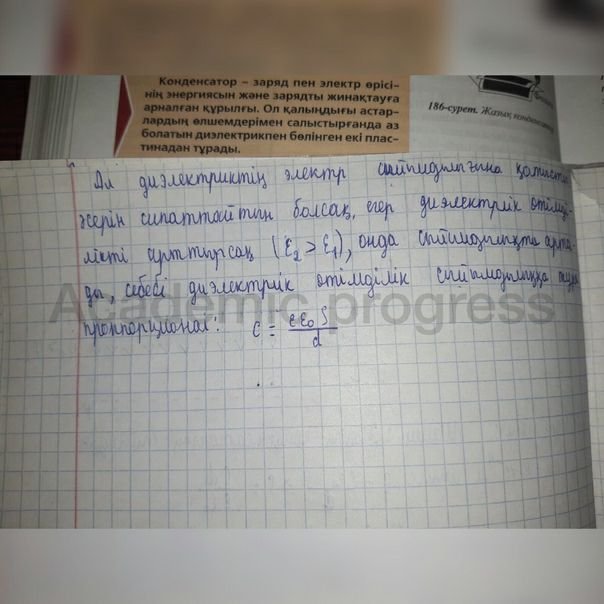 Конденсатор – заряд пен электр өрісі-
нің энергиясын және зарядты жинақтауға
арналған құрылғы. Ол қалыңдығы астар-
лардың өлшемдерімен салыстырғанда аз
болатын диэлектрикпен бөлінген екі плас-
тинадан тұрады.
186-сурет. Жазық конденсатор
Ал диэлектриктің электр сыйымдылығына қатысты
әсерін сипаттайтын болсақ, егер диэлектрлік өтімді-
лікті арттырсақ (ε₂ > ε₁), онда сыйымдылықта арта-
ды, себебі диэлектрик өтімділік сыйымдылыққа тура
пропорционал: c = εε₀ S / d
Academic progress